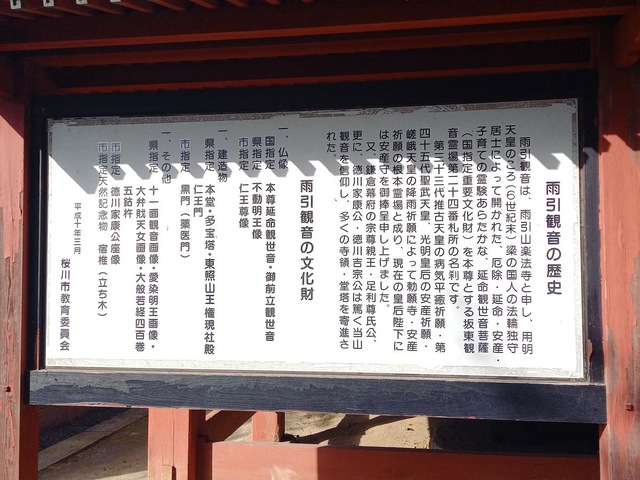 雨引観音の歴史
雨引観音は、雨引山楽法寺と申し、用明
天皇のころ（6世紀末）、梁の国人の法輪独守
居士によって開かれた、厄除・延命・安産・
子育ての霊験あらたかな、延命観世音菩薩
（国指定重要文化財）を本尊とする坂東観
音霊場第二十四番札所の名刹です。
第三十三代推古天皇の病気平癒祈願・第
四十五代聖武天皇、光明皇后の安産祈願・
嵯峨天皇の降雨祈願によって勅願寺・安産
祈願の根本霊場と成り、現在の皇后陛下に
は安産守を御捧呈申し上げました。
又、鎌倉幕府の宗尊親王・足利尊氏公、
更に、徳川家康公・徳川吉宗公は篤く当山
観音を信仰し、多くの寺領・堂塔を寄進さ
れた。
雨引観音の文化財
一、仏像
国指定 本尊延命観世音・御前立観世音
県指定 不動明王像
市指定 仁王尊像
一、建造物
県指定 本堂・多宝塔・東照山王権現社殿
仁王門
市指定 黒門（薬医門）
一、その他
県指定 十一面観音画像・愛染明王画像・
大弁財天女画像・大般若経四百巻
五鈷杵
市指定 徳川家康公座像
市指定天然記念物 宿椎（立ち木）
平成十年三月
桜川市教育委員会